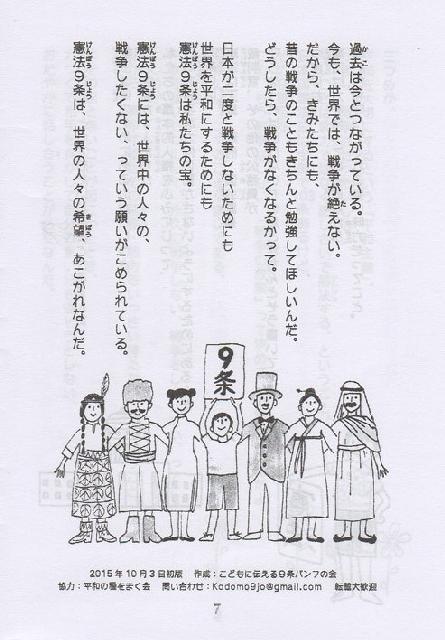 過去は今とつながっている。
今も、世界では、戦争が絶えない。
だから、きみたちにも、
昔の戦争のこともきちんと勉強してほしいんだ。
どうしたら、戦争がなくなるかって。
日本が二度と戦争しないためにも
世界を平和にするためにも
憲法9条は私たちの宝。
憲法9条には、世界中の人々の、
戦争したくない、っていう願いがこめられている。
憲法9条は、世界の人々の希望、あこがれなんだ。
9条
2015年10月3日初版 作成:こどもに伝える9条パンフの会
協力:平和の種をまく会 問い合わせ:Kodomo9jo@gmail.com 転載大歓迎
7